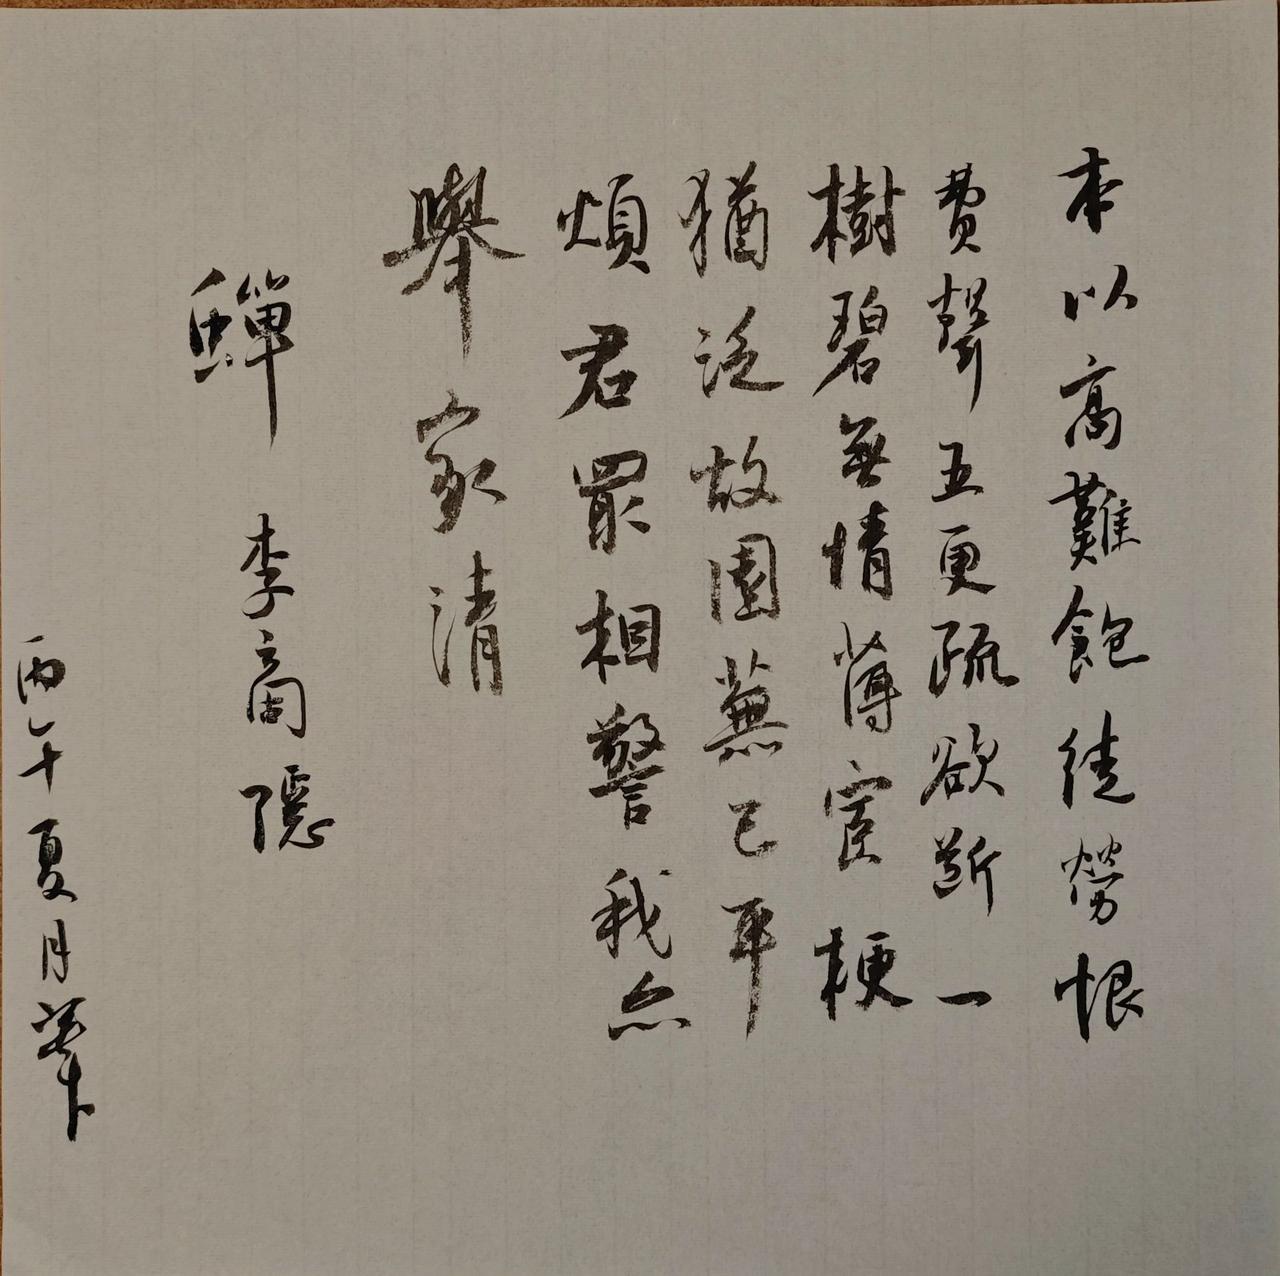 本以高難飽徒勞恨
費聲五更疏欲斷一
樹碧無情薄宦梗
猶泛故園蕪已平
煩君最相警我亦
舉家清
蟬 李商隱
丙午夏月